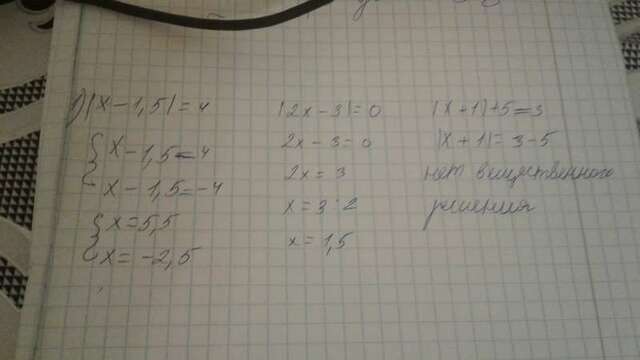 1) |x - 1,5| = 4
x - 1,5 = 4
x - 1,5 = -4
x = 5,5
x = -2,5
|2x - 3| = 0
2x - 3 = 0
2x = 3
x = 3 : 2
x = 1,5
|x + 1| + 5 = 3
|x + 1| = 3 - 5
нет вещественного
решения